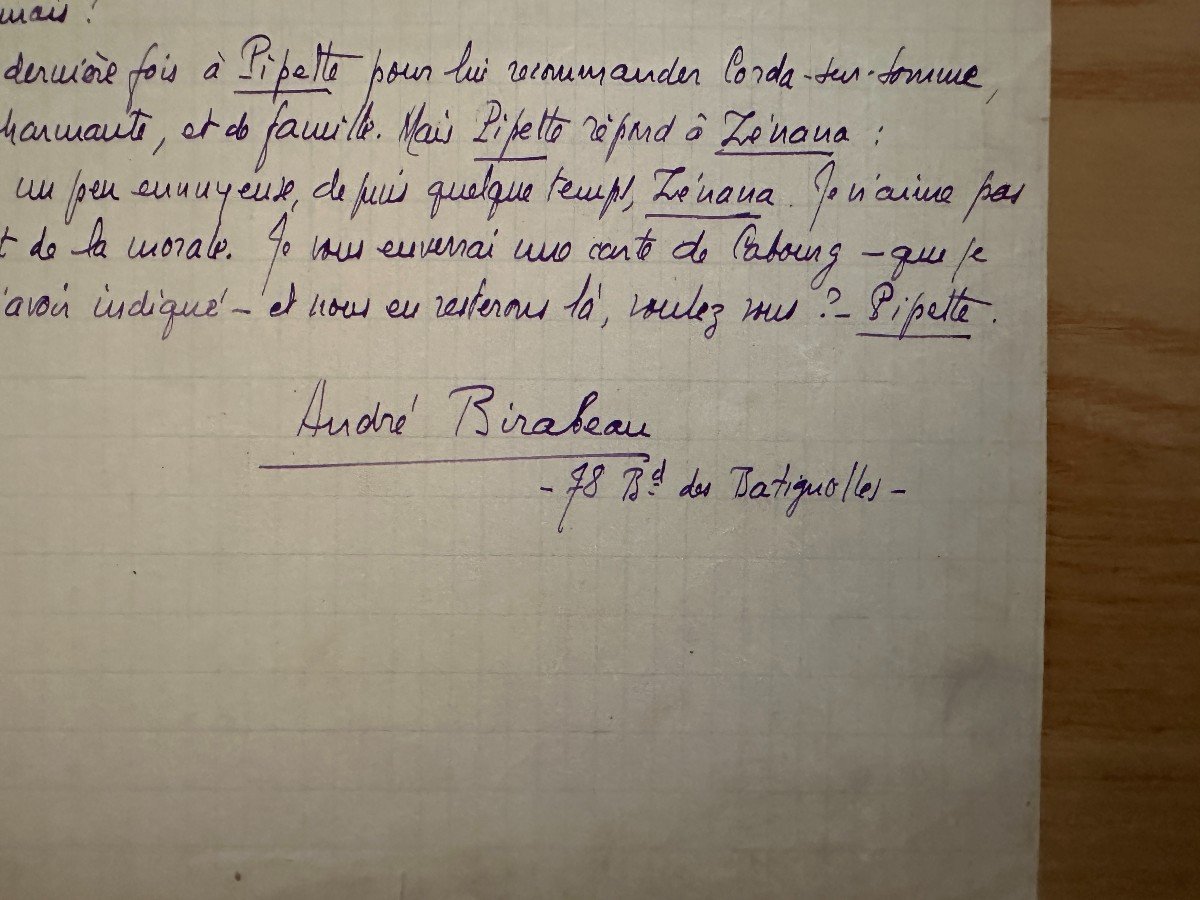 mais !
dernière fois à Pipette pour lui recommander Corda-sur-Somme,
harmante, et de famille. Mais Pipette répond à Zénana :
un peu ennuyeuse, depuis quelque temps, Zénana. Je n'aime pas
t de la morale. Je vous enverrai une carte de Cabourg – que je
avoir indiqué – et nous en resterons là, voulez vous ? – Pipette.
André Birabeau
– 78 Bd des Batignolles –